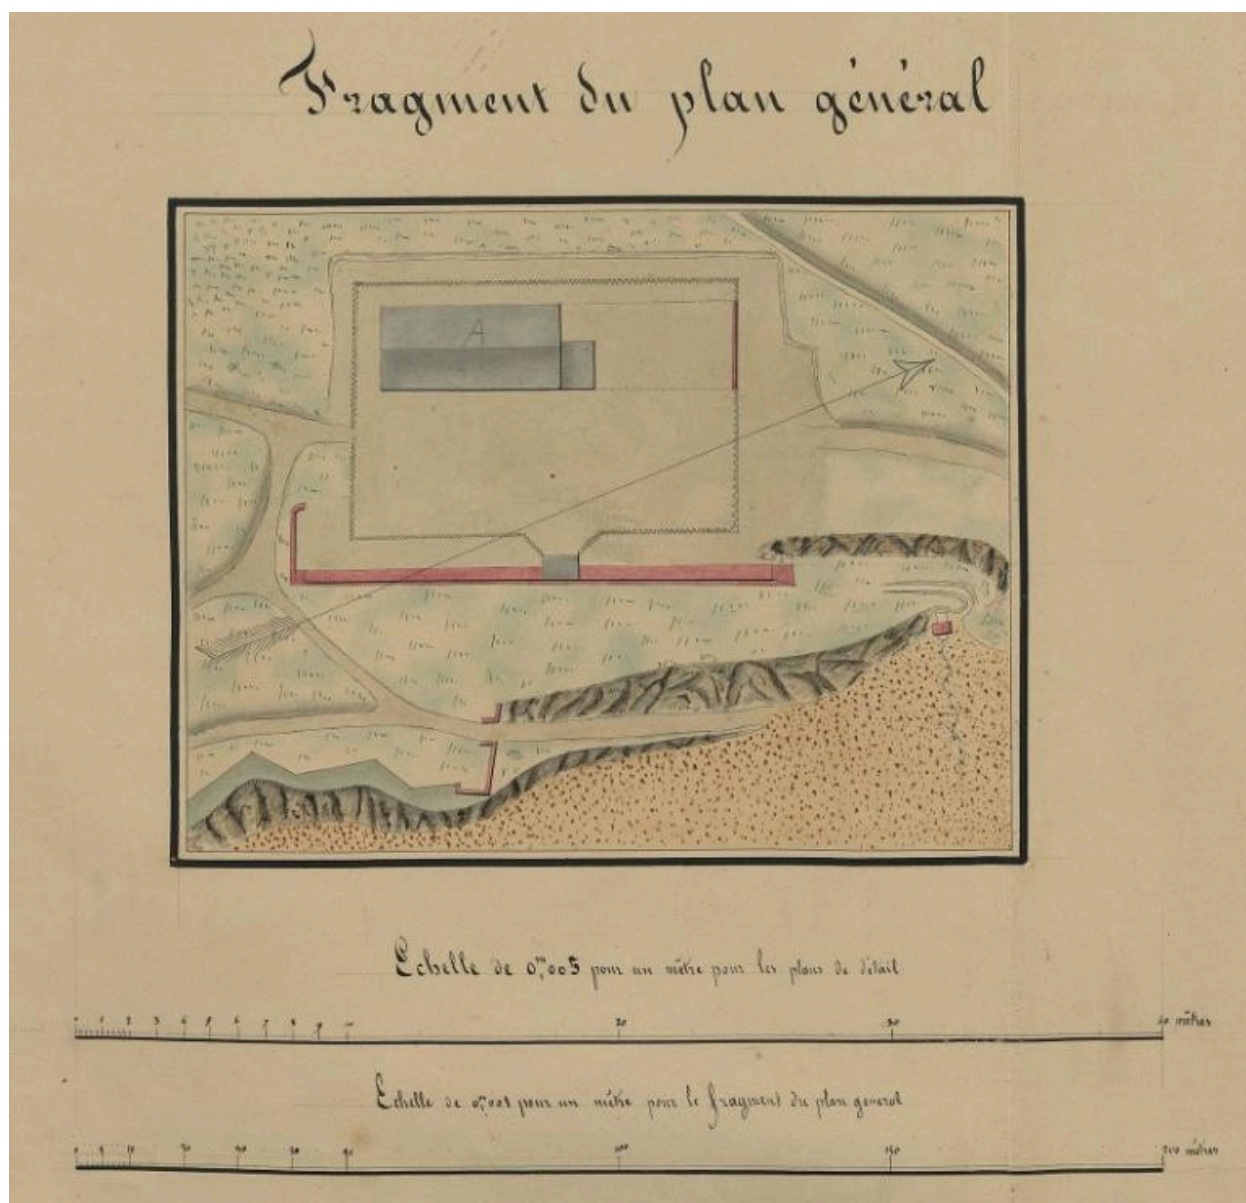 Fragment du plan général
A
Echelle de 0,m005 pour un mètre pour les plans de détail
0 1 2 3 4 5 6 7 8 9 10 20 30 40 mètres
Echelle de 0,m001 pour un mètre pour le fragment du plan général
100 150 200 mètres